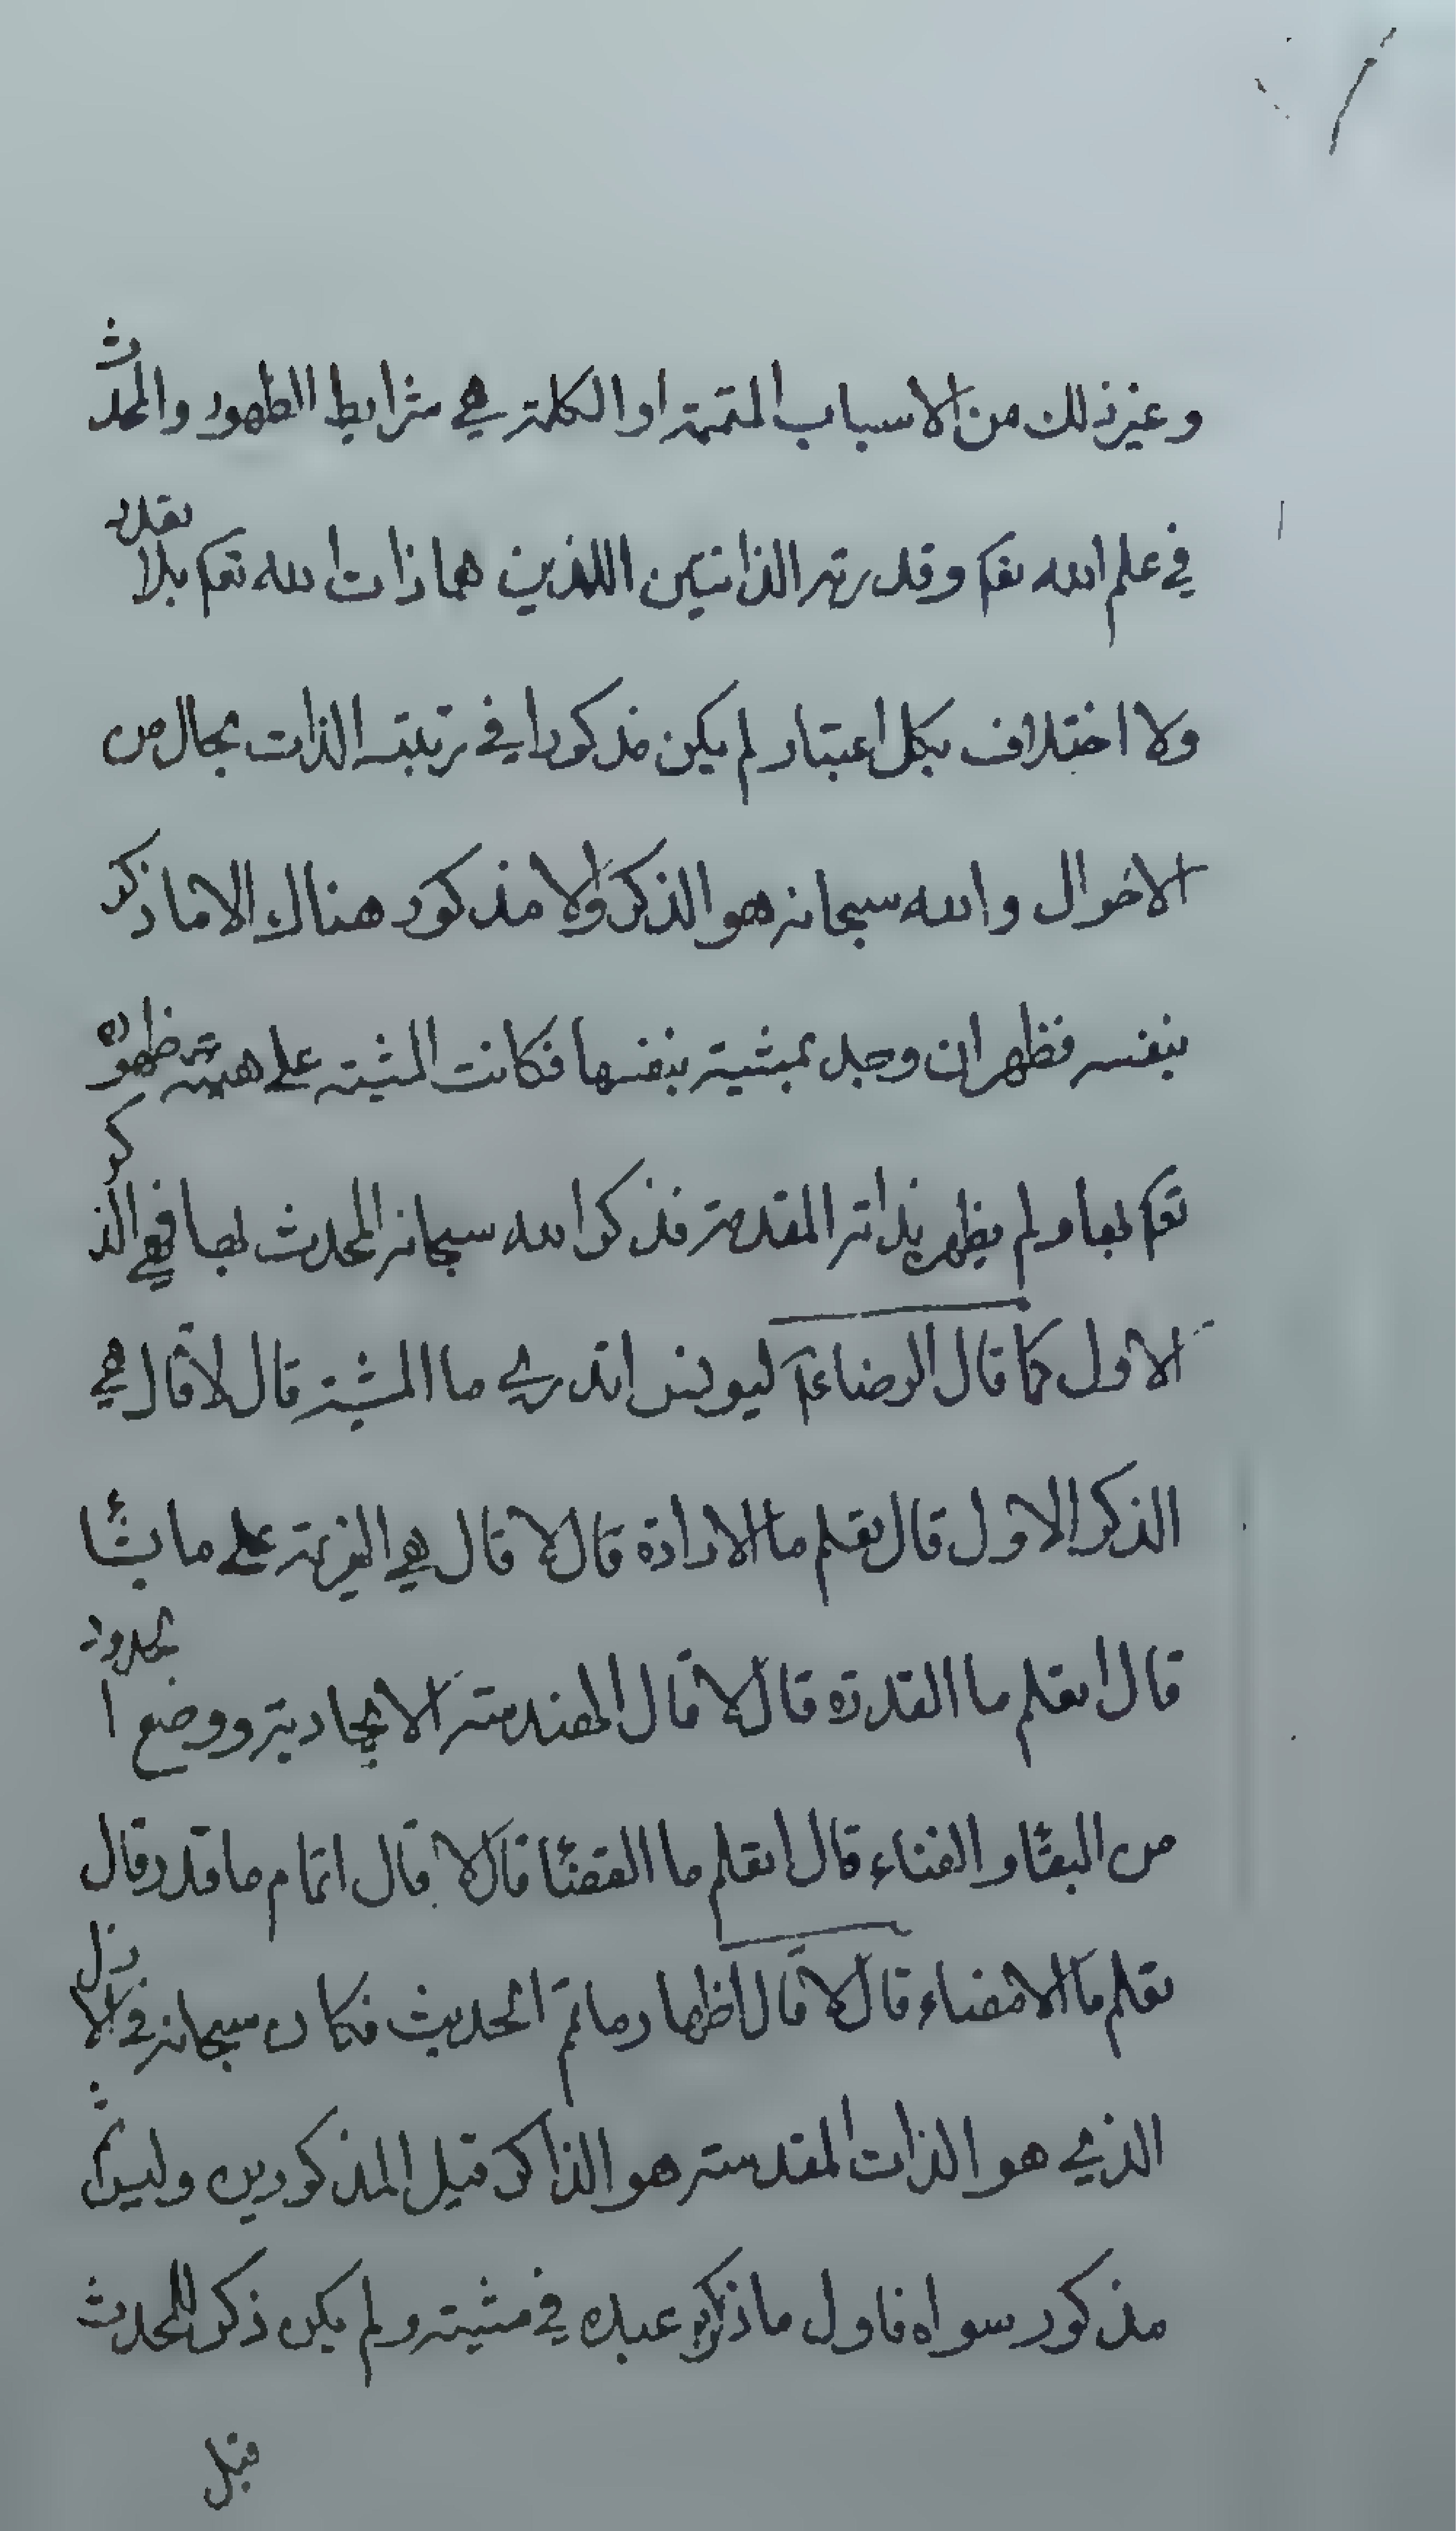 وغير ذلك من الاسباب المتممة او المكملة هي شرايط الظهور والمحدث
في علم الله تعم وقدرته الذاتيين اللذين هما ذات الله تعم بلا تعدد
ولا اختلاف بكل اعتبار لم يكن مذكورا في رتبته الذات بحال من
الاحوال والله سبحانه هو الذكر ولا مذكور هناك الا ما ذكر
بنفسه فظهر ان وجد بمشية بنفسها فكانت المشية على هيئة ظهوره
تعم لها ولم يظهر بذاته المقدسة فذكر الله سبحانه المحدث لها فهي الذكر
الاول كما قال الرضاء ع ليونس اتدري ما المشية قال لا قال هي
الذكر الاول قال تعلم ما الارادة قال لا قال هي العزيمة على ما يشٔا
قال اتعلم ما القدرة قال لا قال الهندسة الايجادية ووضع الحدود
من البقٔا والفناء قال اتعلم ما القضٔا قال لا قال اتمام ما قدر وقال
تعلم ما الامضاء قال لا قال اظهار ما تم الحديث فكان سبحانه في الازل
الذي هو الذات المقدسة هو الذاكر قبل المذكورين وليس ثم
مذكور سواه فاول ما ذكر به عبده في مشيته ولم يكن ذكر للمحدث
قبل